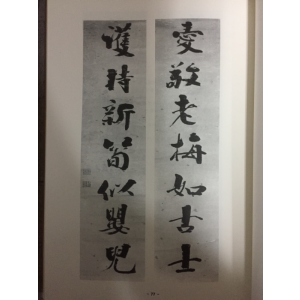 愛敬老梅如吉士
護持新筍似嬰兒